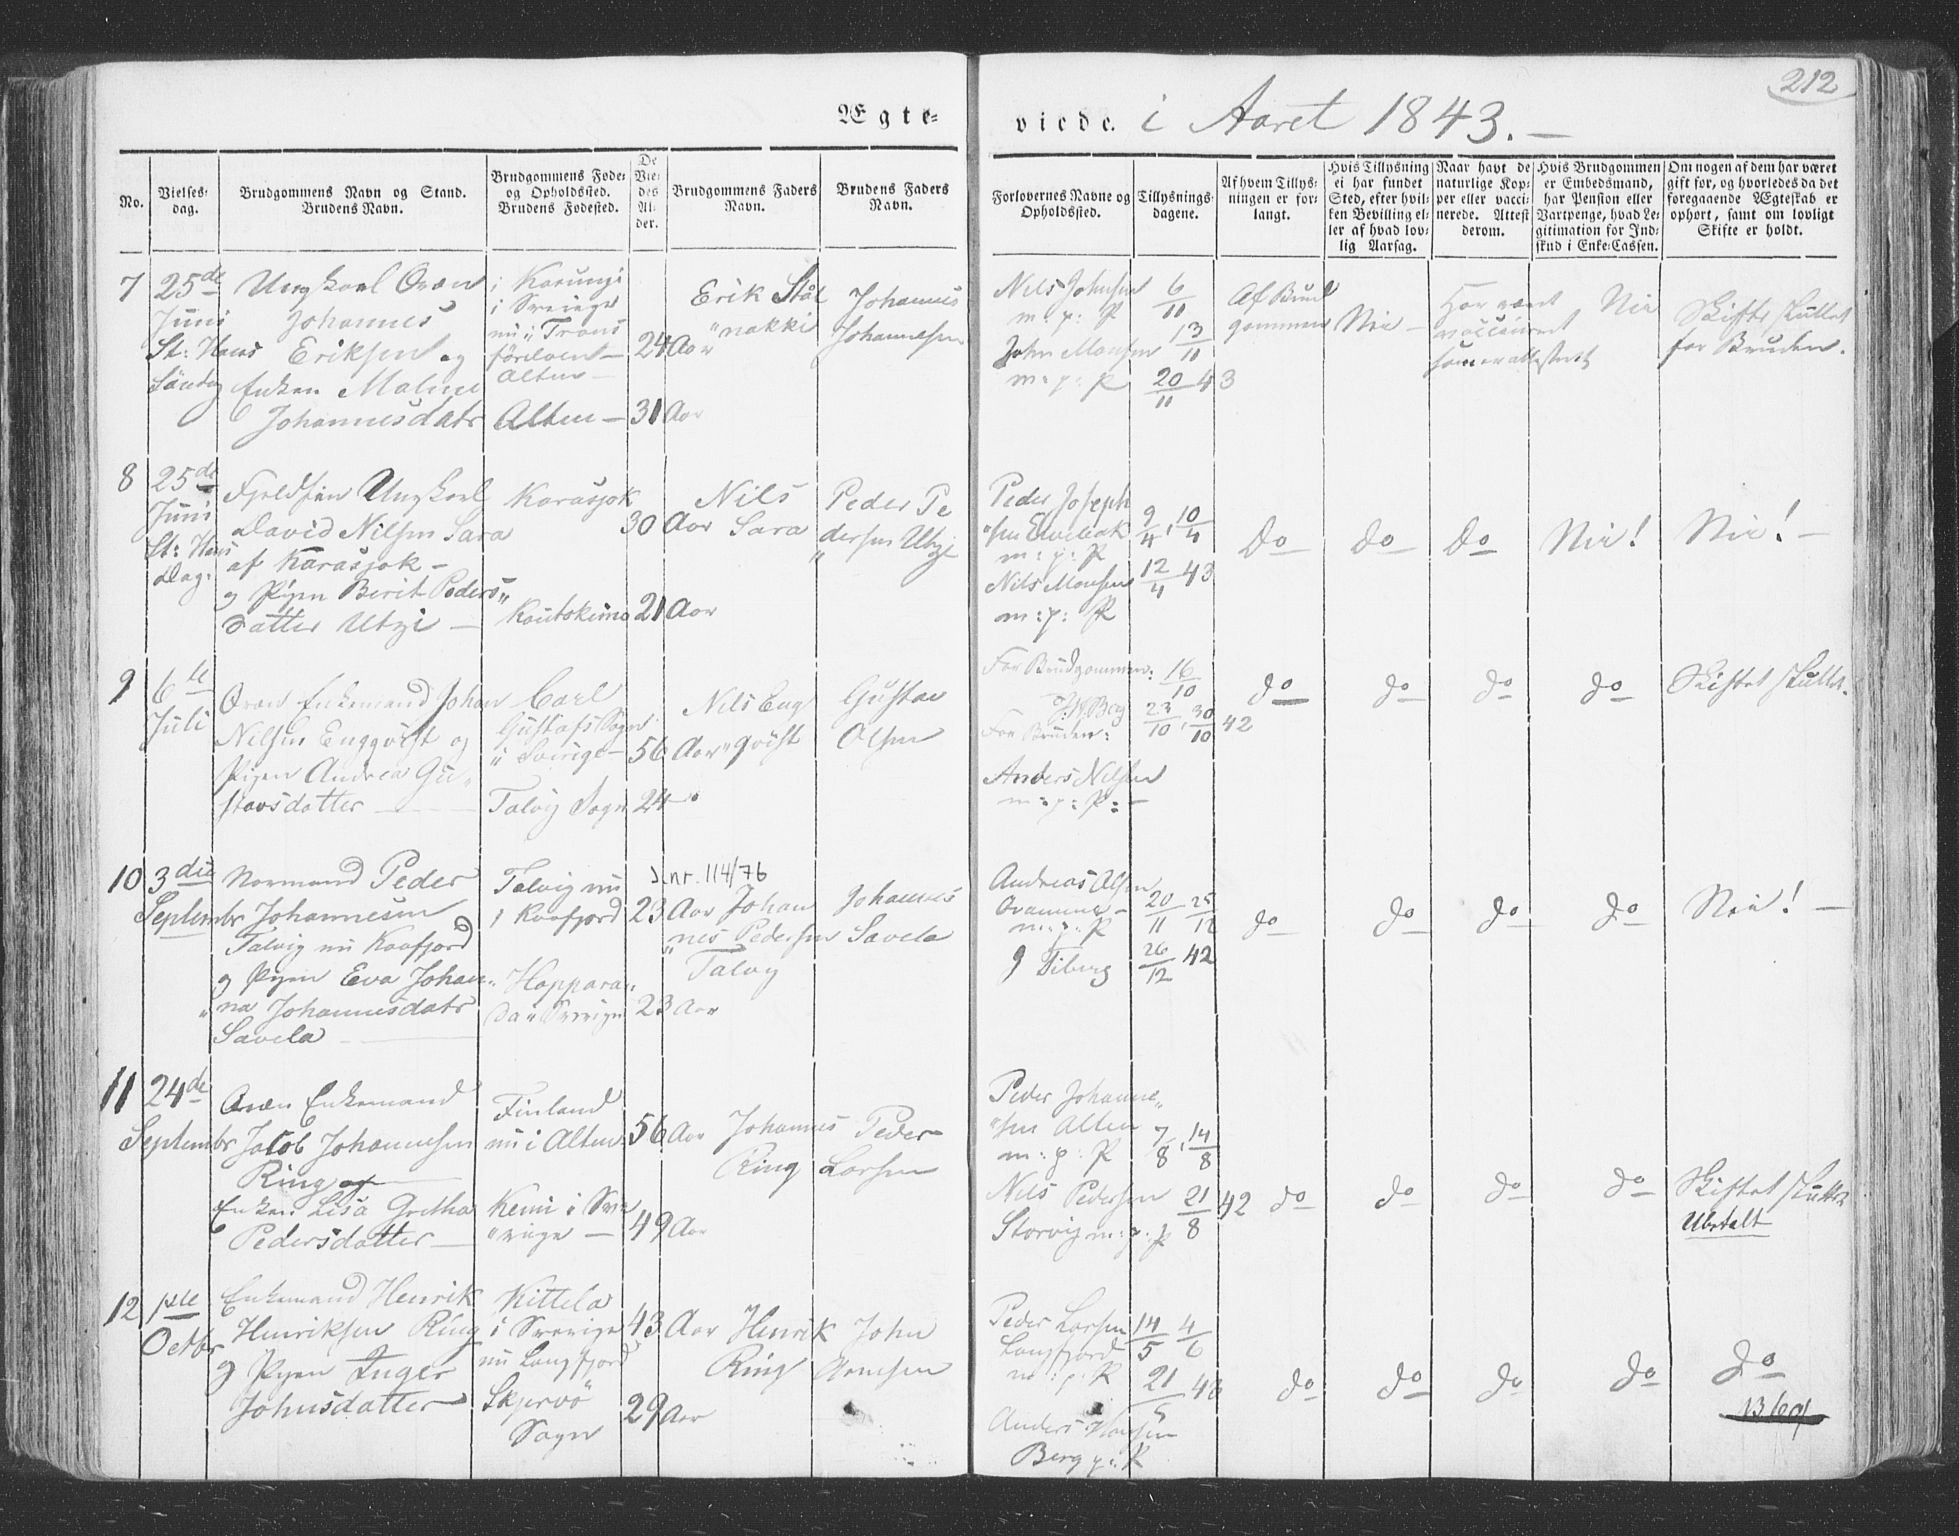 212
Ægte-
viede. i Aaret 1843.
No.
Vielses-
dag.
Brudgommens Navn og Stand.
Brudens Navn.
Brudgommens Føde-
og Opholdssted.
Brudens Fødested.
De
Vie-
des
Al-
der.
Brudgommens Faders
Navn.
Brudens Faders
Navn.
Forlovernes Navne og
Opholdssted.
Tillysnings-
dagene.
Af hvem Tillys-
ningen er for-
langt.
Hvis Tillysning
ei har fundet
Sted, efter hvil-
ken Bevilling el-
ler af hvad lov-
lig Aarsag.
Naar havt de
naturlige Kop-
per eller vacci-
nerede. Attest
derom.
Hvis Brudgommen
er Embedsmand,
har Pension eller
Vartpenge, hvad Le-
gitimation for Ind-
skud i Enke-Cassen.
Om nogen af dem har været
gift før, og hvorledes da det
foregaaende Ægteskab er
ophørt, samt om lovligt
Skifte er holdt.
7
25de
Juni
St: Hans
Søndag
Ungkarl Qvæn
Johannes
Eriksen og
Enken Malene
Johannesdatr
i Karungi
i Sverige
nu i
Alten
Alten
24 Aar
31 Aar
Erik Stål
"nakki
Johannes
Johannesen
Nils Johnsen
m: p: P
John Monsen
m: p: P
6/11
13/11
20/11 43
Af Brud
gommen
Nei
Har været
vaccineret
som er attesteret
Nei
Skifte sluttet
for Bruden.
8
25de
Juni
St: Hans
Dag:
Fjeldfin Ungkarl
David Nilsen Sara
af Karasjok
og Pigen Berit Peders"
datter Utzi
Karasjok
Koutokeino
30 Aar
21 Aar
Nils
Sara
Peder Pe
"dersen Utzi
Peder Joseph
"sen
m: p: P
Nils Monsen
m: p: P
9/4, 10/4
12/4 43
Do
Do
Do
Nei!
Nei!
9
6te
Juli
Qvæn Enkemand Johan
Nilsen Engqvist og
Pigen Andrea Gu"
stavsdatter
Carl
Gustafs Sogn
i Sverige
Talvig Sogn
56 Aar
24
Nils Eng
"qvist
Gustav
Olsen
For Brudgommen:
Berg
For Bruden:
Anders Nilsen
m: p: P:
16/10
23/10, 30/10 42
do
do
do
do
Skiftet sluttet.
10
3die
Septembr
Normand Peder
Johannesen
Talvig nu Kaafjord
og Pigen Eva Johan"
"na Johannesdatr
Savela
Talvig nu
i Kaafjord
Happaran"
da i Sverige
23 Aar
23 Aar
J.nr. 114/76
Johan
"nes Pedersen
Talvig
Johannes
Savela
Andreas Olsen
m: p: P
og Tiberg
20/11 25/12
26/12 42
do
do
do
do
Nei!
11
24de
Septembr
Qvæn Enkemand
Jakob Johannesen
Ring og
Enken Lisa Gretha
Pedersdatter
Finland
nu i Alten
Kemi i Sve
"rige
56 Aar
49 Aar
Johannes
Ring
Peder
Larsen
Peder Johanne"
"sen Alten
m: p: P
Nils Pedersen
Storvig m: p: P
7/8, 14/8
21/8 42
do
do
do
do
Skiftet sluttet
Ubetalt
12
1ste
Octbr
Enkemand Henrik
Henriksen Ring
og Pigen Inger
Johnsdatter
Kittela
i Sverige
nu Langfjord
Skjervö
Sogn
43 Aar
29 Aar
Henrik
Ring
John
Arnesen
Peder Larsen
Langfjord
m: p: P
Anders Hansen
Berg p: P
14/5 4/6
21/5 43
do
do
do
do
do